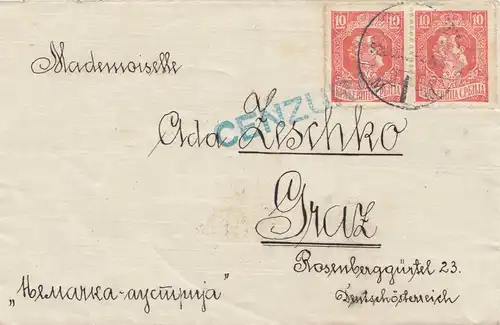 10 10 10 10
СРБИЈА СРБИЈА
Mademoiselle
CENZU
Ada Zeschko
Graz
Rosenberggürtel 23.
„Немачка-аустрија"
Deutschösterreich